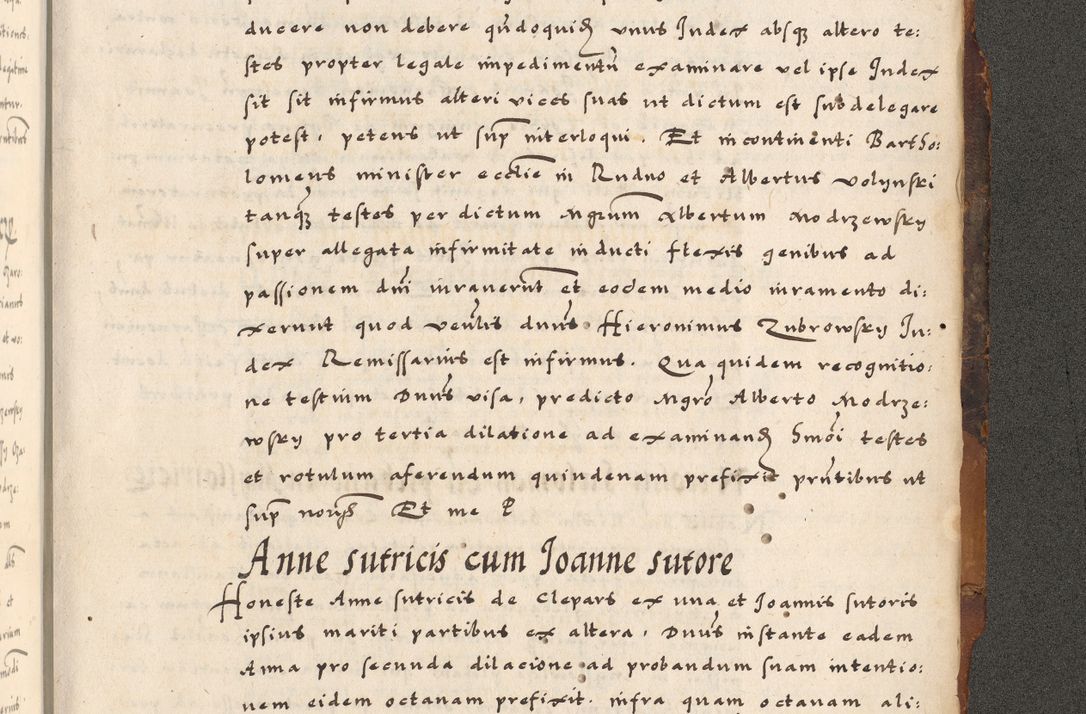 ducere non debere qũdoquid unus Iudex absq altero te:
stes propter legale impedimentũ examinare vel ipse Iudex
sit sit infirmus alteri vices suas ut dictum est subdelegare
potest, petens ut sup̃ interloqui. Et incontinenti Bartho:
lomeus minister eccłie in Rudno et Albertus Volynski
tanq̃ testes per dictum Mgrum Albertum Modrzewsky
super allegata infirmitate inducti flexis genibus ad
passionem dnĩ iuraverũt et eodem medio iuramento di:
xerunt quod venłis dnũs Hieronimus Zubrowsky Iu:
dex Remissarius est infirmus. Qua quidem recognitio:
ne testium Dnũs visa, predicto Mgrõ Alberto Modrze:
wsky pro tertia dilatione ad examinand hmõi testes
et rotulum aferendum quindenam prefixit prñtibus ut
sup̃ Et me P
Anne sutricis cum Ioanne sutore
Honeste Anne sutricis de Clepars ex una et Ioannis sutoris
ipsius mariti partibus ex altera, Dnũs instante eadem
Anna pro secunda dilacione ad probandum suam intentio:
nem eidem octavam prefixit. infra quam octavam ali: